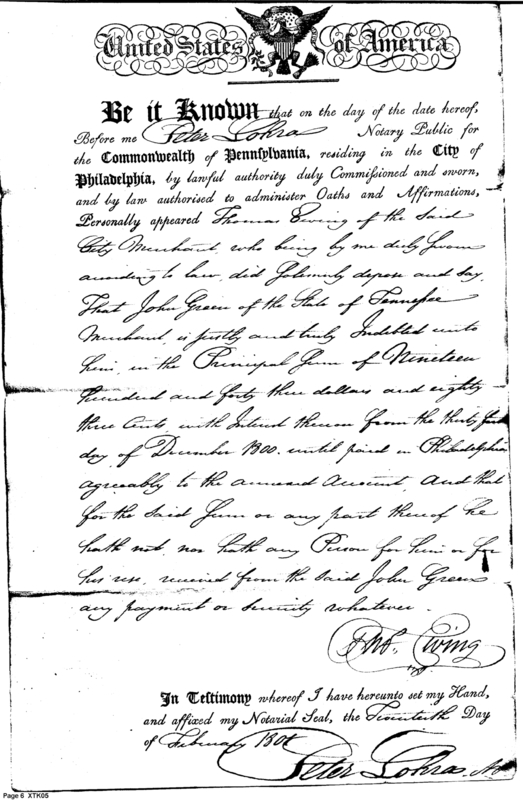 United States of America
Be it Known that on the day of the date hereof,
Before me Peter Lohra Notary Public for
the Commonwealth of Pennsylvania, residing in the City of
Philadelphia, by lawful authority duly Commissioned and sworn,
and by law authorised to administer Oaths and Affirmations,
Personally appeared Thomas Ewing of the Said
City Merchant, who being by me duly Sworn
according to law, did Solemnly depose and Say,
That John Green of the State of Tennessee
Merchant, is justly and truly Indebted unto
him, in the Principal Sum of Nineteen
hundred and forty three dollars and eighty
three Cents, with Interest thereon from the thirty first
day of December 1800. until paid in Philadelphia
agreeably to the annexed Account, And that
for the Said Sum or any part thereof he
hath not, nor hath any Person for him or for
his use, received from the Said John Green
any payment or Security whatever.
Thos. Ewing
In Testimony whereof I have hereunto set my Hand,
and affixed my Notarial Seal, the Twentieth Day
of February
Peter Lohra, N.P.
Page 6 XTK05